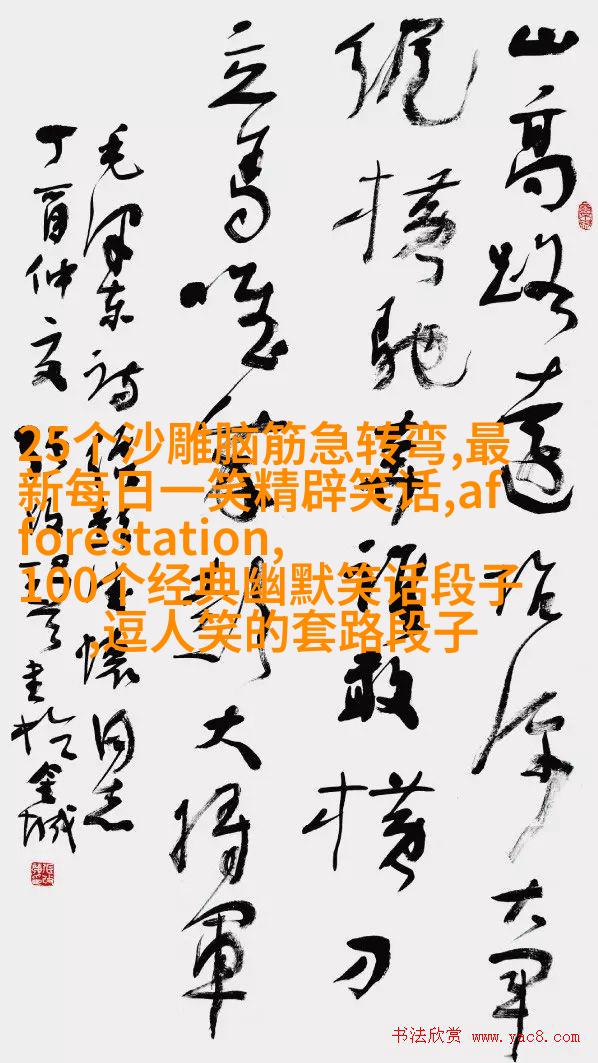 山高路遠坑深大军
纵横驰奔誰敢横刀
立馬唯我彭大将軍
毛泽东诗 懷同志
丁酉仲夏 书于金城
25个沙雕脑筋急转弯,最
新每日一笑精辟笑话,af
forestation,
100个经典幽默笑话段子
,逗人笑的套路段子
书法欣赏 www.yac8.com